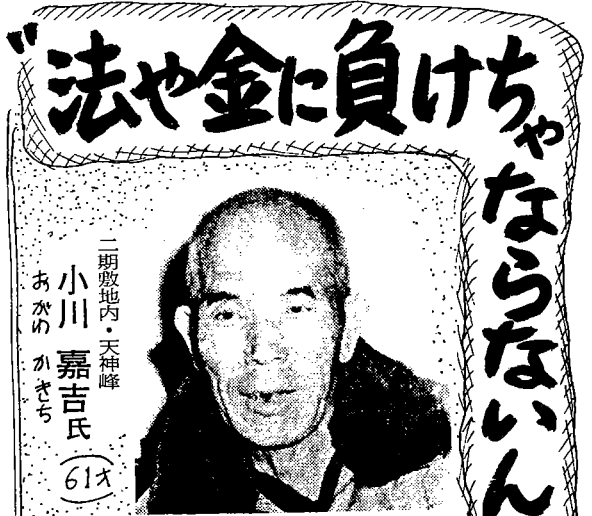 〝法や金に負けちゃ
ならないん
二期敷地内・天神峰
小川 嘉吉氏
おがわ かきち
(61才)